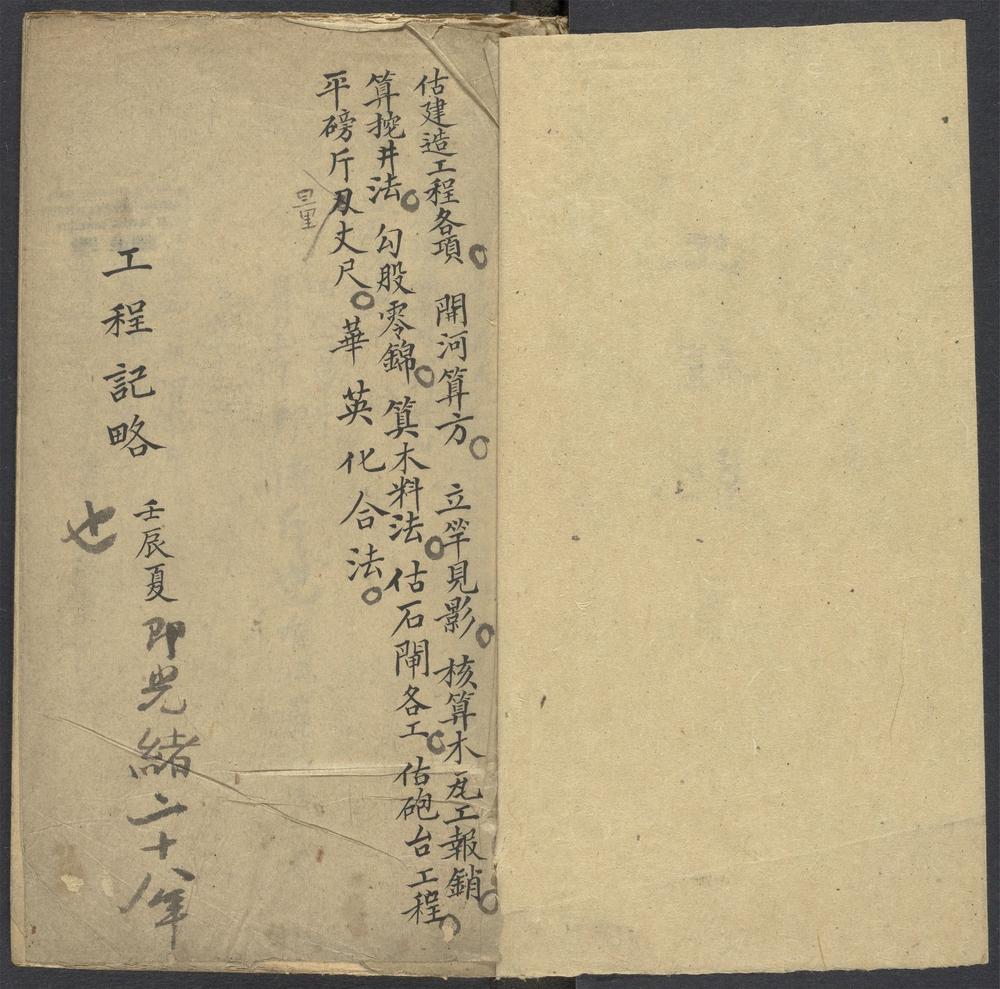 估建造工程各項。開河算方。立竿見影。核算木瓦工報銷。
算挖井法。勾股零錦。算木料法。估石閘各工。估砲台工程。
平磅斤及丈尺。華英化合法。
量
工程記略 壬辰夏即光緒二十八年
也